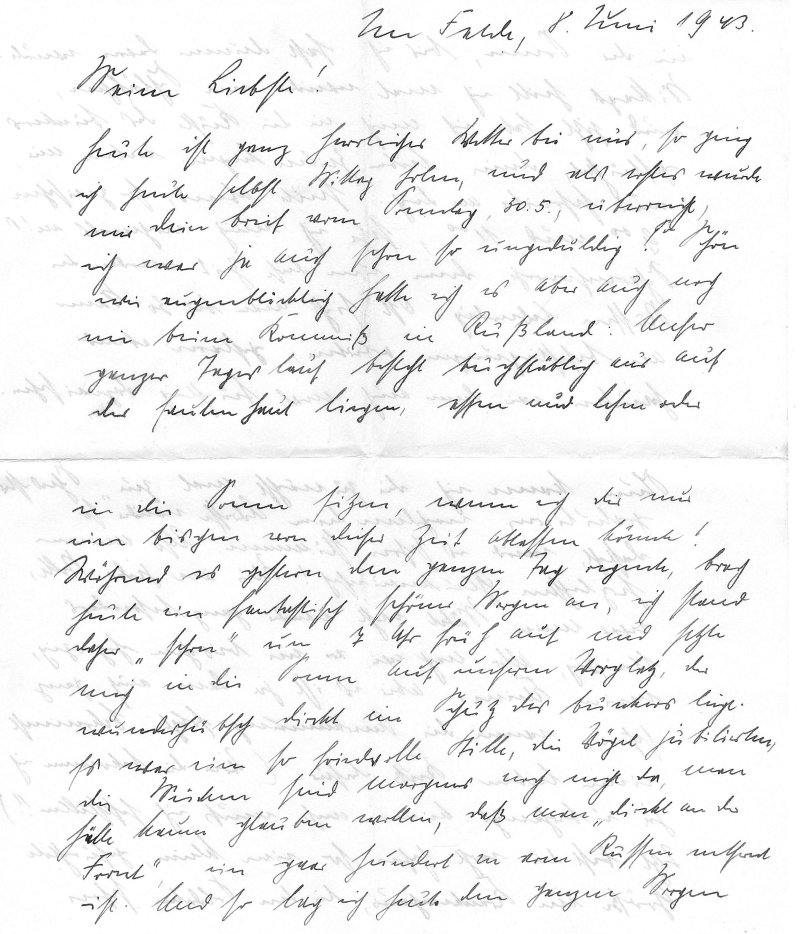 Im Felde, 8. Juni 1943.
Meine Liebste!
Heute ist ganz herrliches Wetter bei uns, so ging
ich heute selbst Mittag holen, und als erstes wurde
mir Dein Brief vom Sonntag, 30.5., überreicht,
ich war ja auch schon so ungeduldig! So schön
wie augenblicklich hatte ich es aber auch noch
nie beim Kommiß in Rußland. Unser
ganzer Tageslauf besteht buchstäblich aus auf
der faulen Haut liegen, essen und lesen oder
in der Sonne sitzen, wenn ich Dir nur
ein bischen von dieser Zeit ablassen könnte!
Während es gestern den ganzen Tag regnete, brach
heute ein fantastisch schöner Morgen an, ich stand
daher „schon" um 7 Uhr früh auf und setzte
mich in die Sonne auf unseren Vorplatz, der
wunderhübsch direkt im Schutz des Bunkers liegt.
Es war eine so friedvolle Stille, die Vögel jubilierten,
die Mücken sind morgens noch nicht da, man
hätte kaum glauben wollen, daß man „direkt an der
Front", ein paar hundert m vom Russen entfernt
ist. Und so lag ich heute den ganzen Morgen